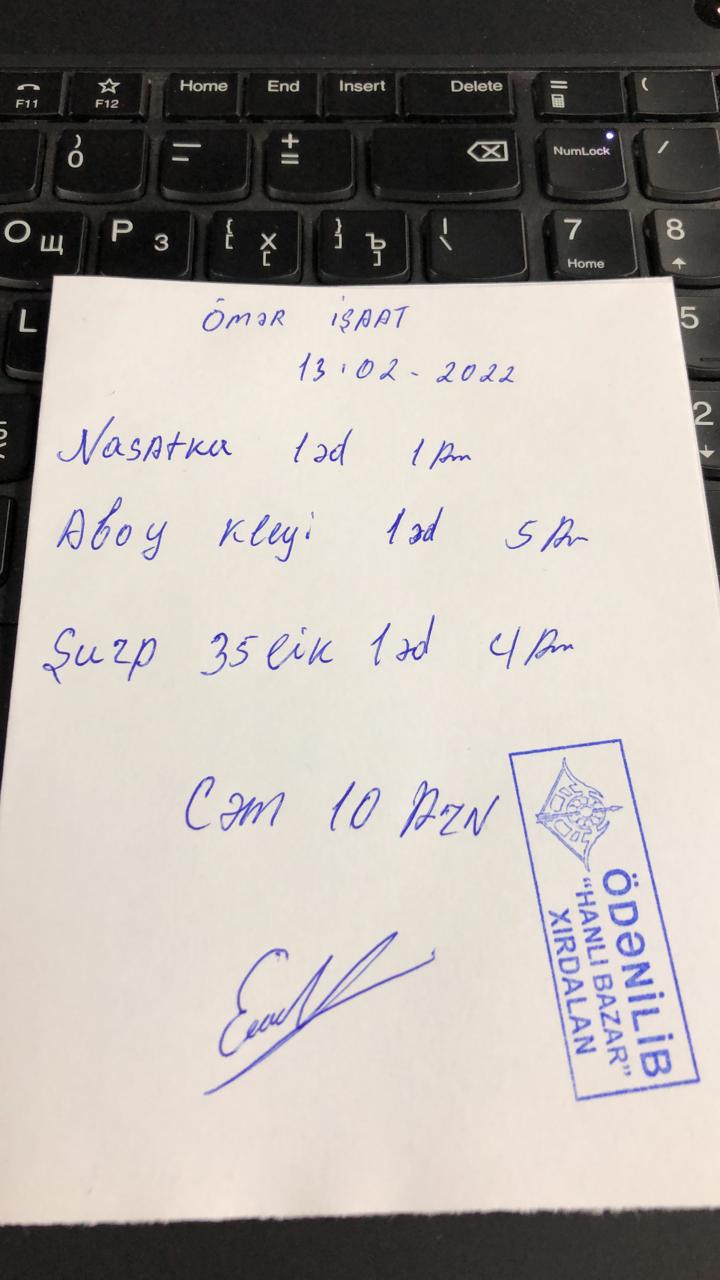 F11 F12 Home End Insert Delete = (
) 0 — - + = NumLock /
О Щ P З { [ Х [ } ] Ъ ] | \ 7 Home 8
L 5
2
ÖMƏR İŞAAT
13.02-2022
Nasatka 1əd 1 Am
Aboy kleyi 1əd 5 Am
Şurp 35lik 1əd 4 Am
Cəm 10 AZN
ÖDƏNİLİB
"HANLI BAZAR"
XIRDALAN